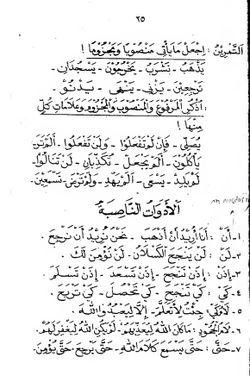 ٢٥
التَّمْرِينُ: اِجْعَلْ مَا يَأْتِي مَنْصُوبًا وَمَجْزُومًا!
يَذْهَبُ – نَشْرَبُ – يَخْرُجُونَ – يَسْجُدَانِ –
تَرْجِعِينَ – يَرْمِي – يَنْهَى – يَدْعُو –
اُذْكُرِ الْمَرْفُوعَ وَالْمَنْصُوبَ وَالْمَجْزُومَ وَعَلَامَاتِ كُلٍّ
مِنْهَا!
يُصَلِّي – فَإِنْ لَمْ تَفْعَلُوا – وَلَنْ تَفْعَلُوا – أَلَمْ تَرَ –
يَأْكُلُونَ – أَلَمْ يَجْعَلْ – تُكَذِّبَانِ – لَنْ تَنَالُوا –
لَمْ يَلِدْ – يَسْعَى – وَلَوْ تَرَى – تَسْمَعِينَ –
الْأَدَوَاتُ النَّاصِبَةُ
١– أَنْ : أَنَا أُرِيدُ أَنْ أَذْهَبَ – نَحْنُ نُرِيدُ أَنْ نَرْجِعَ –
٢– لَنْ : لَنْ يَنْجَحَ الْكَسْلَانُ – لَنْ نُؤْمِنَ لَكَ –
٣– إِذَنْ : إِذَنْ تَنْجَحَ – إِذَنْ تَسْعَدَ – إِذَنْ تَسْلَمَ –
٤– كَيْ : كَيْ تَنْجَحَ – كَيْ تَحْصُلَ – كَيْ تَرْبَحَ –
٥– لَامُ كَيْ : جِئْتُ لِأَتَعَلَّمَ – إِلَّا لِيَعْبُدُوا اللهَ –
٦– لَامُ الْجُحُودِ : مَا كَانَ اللهُ لِيُعَذِّبَهُمْ – لَمْ يَكُنِ اللهُ لِيَغْفِرَ لَهُمْ
٧– حَتَّى : حَتَّى يَسْمَعَ كَلَامَ اللهِ – حَتَّى يَرْجِعَ – حَتَّى يُؤْمِنَ –